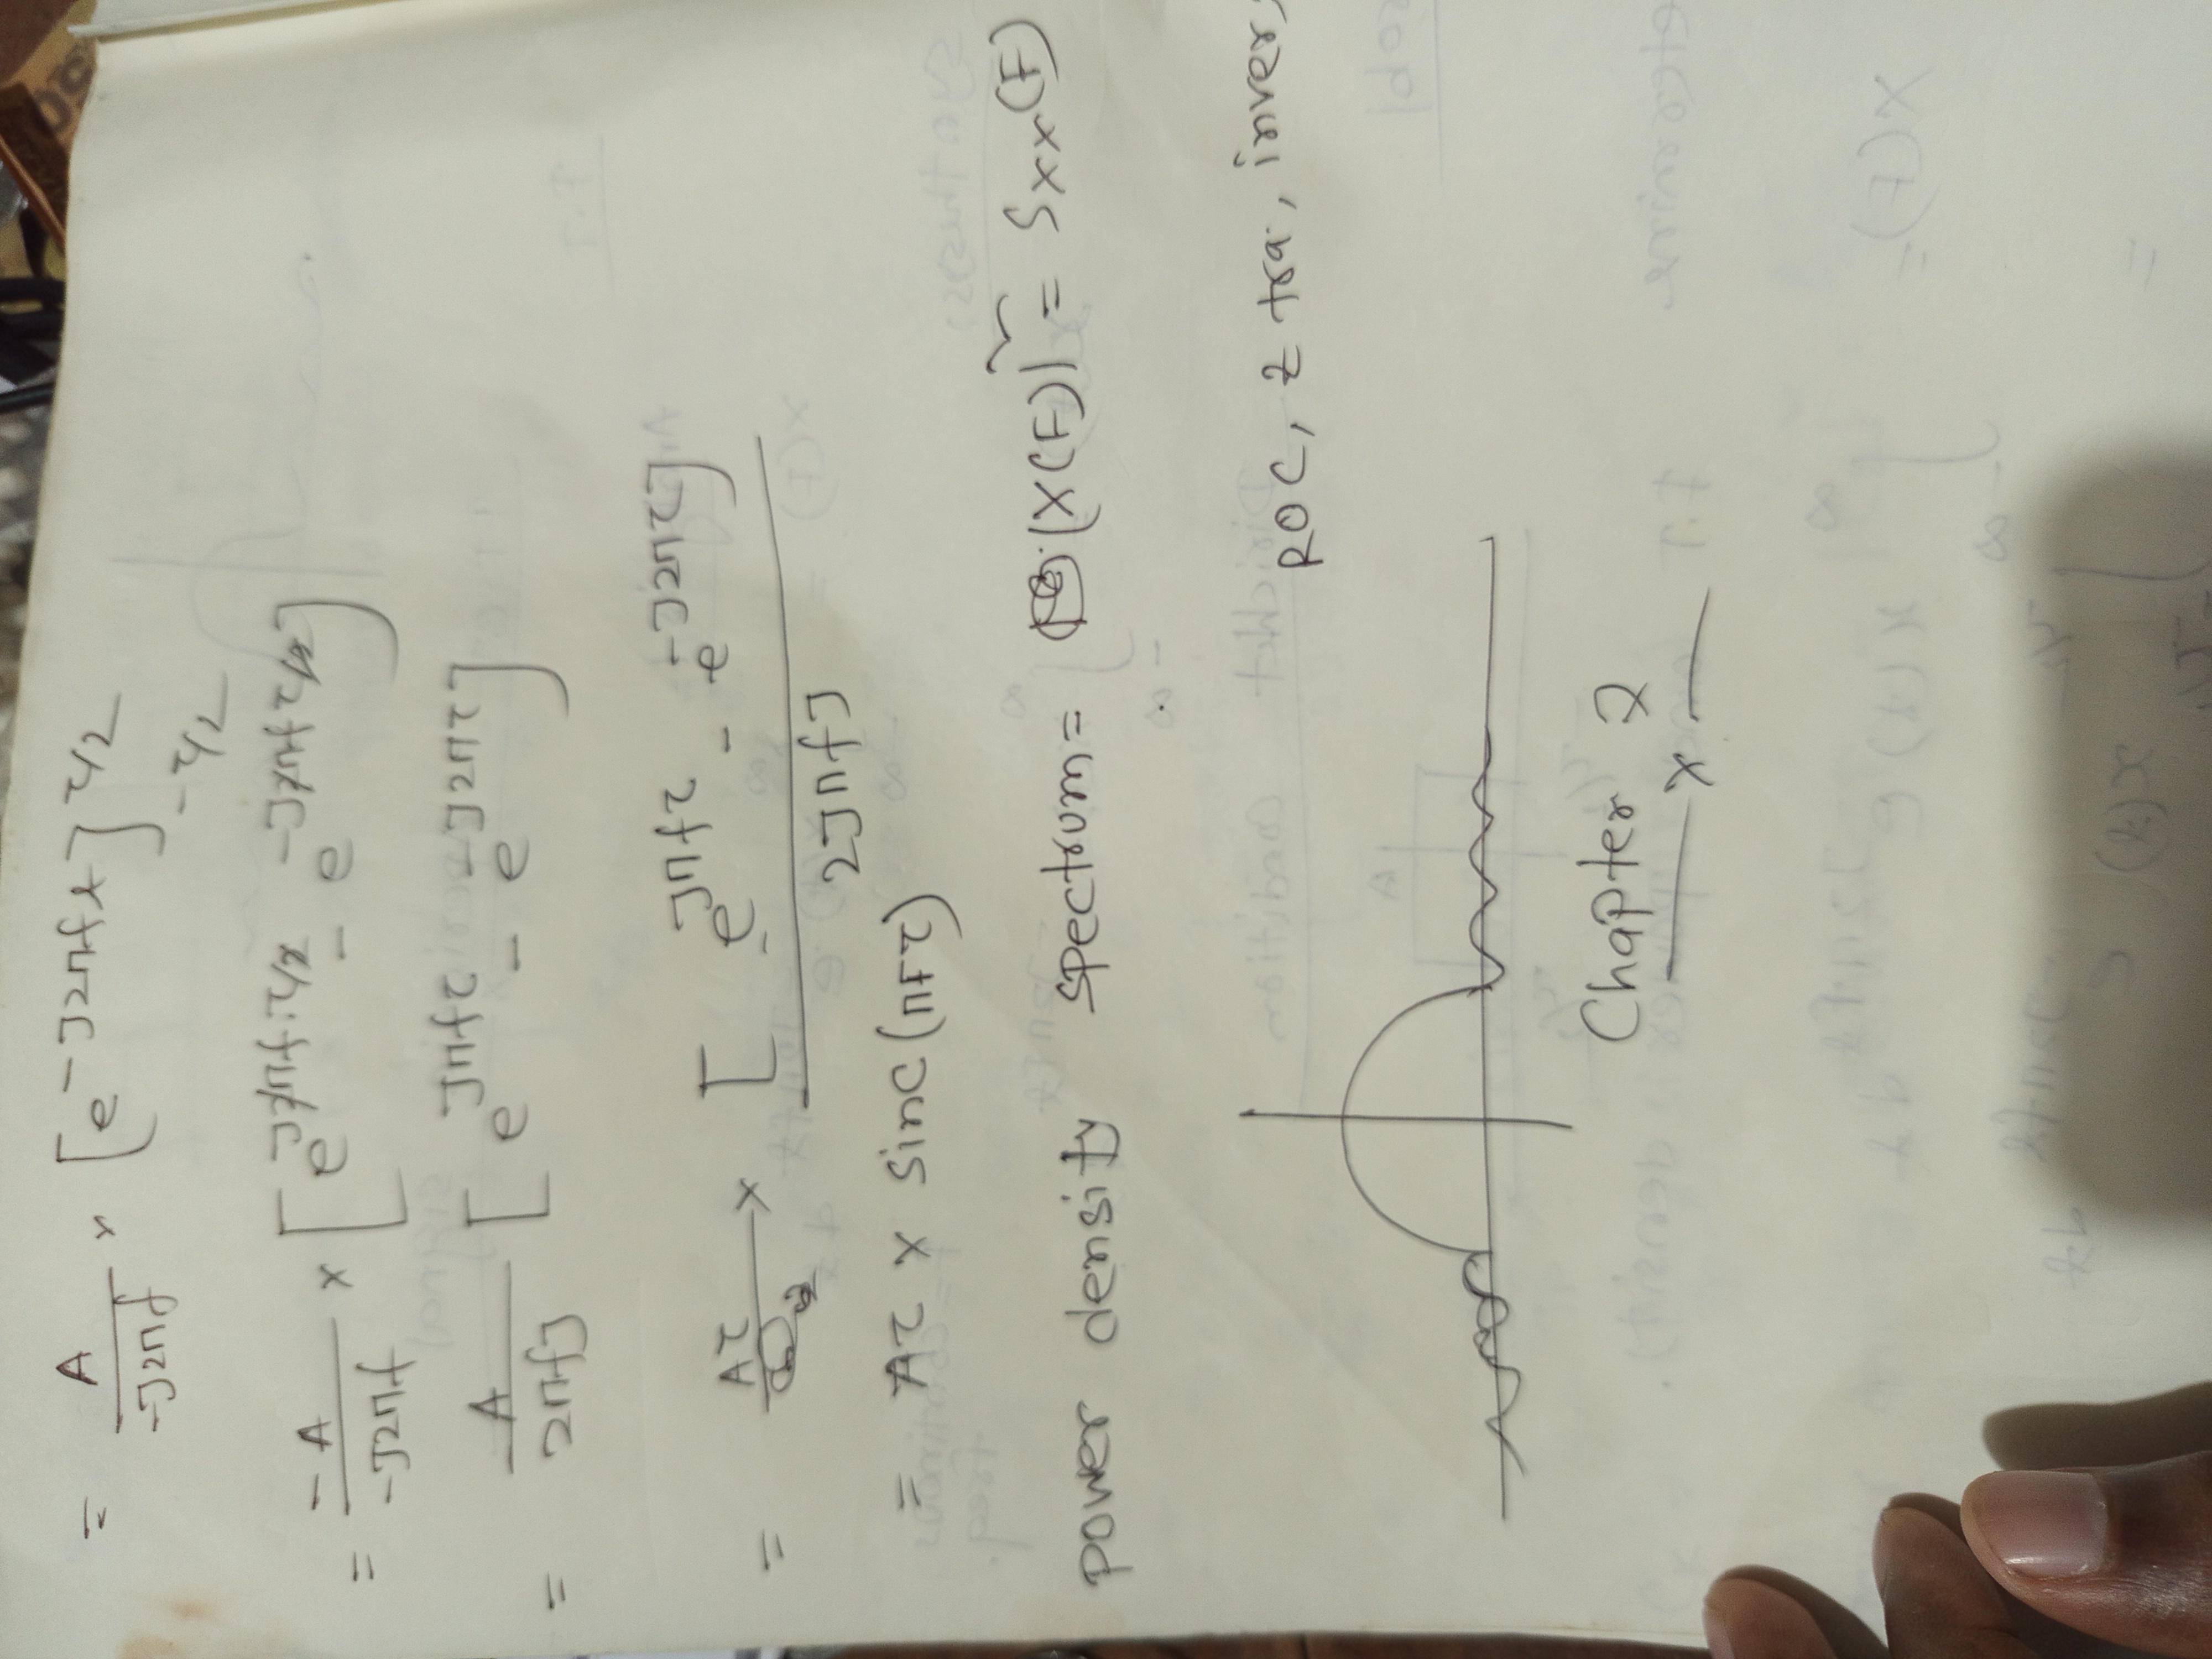 = A / -J2πf × [e^-J2πft]^τ/2 _-τ/2
= -A / -J2πf × [e^J2πf.τ/2 - e^-J2πfτ/2]
= A / 2πfJ [e^Jπfτ - e^-J2πτ]
= Aτ / × [e^Jπfτ - e^-J2πτ] / 2JπfJ
= Aτ × sinc(πFτ)
power density spectrum = |X(F)|² = Sxx(F)
ROC, Z tra., invers
Chapter 2
x